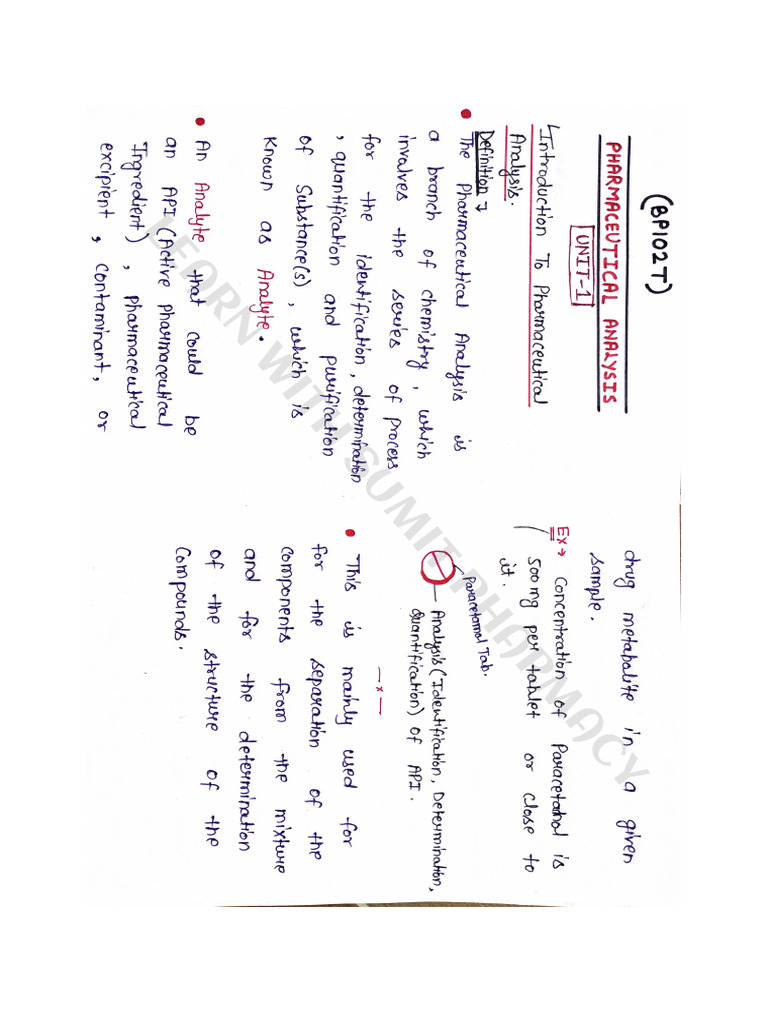 (BP102T)
PHARMACEUTICAL ANALYSIS
UNIT-1
Introduction To Pharmaceutical
Analysis.
Definition →
• The Pharmaceutical Analysis is
a branch of chemistry, which
involves the series of process
for the identification, determination
, quantification and purification
of Substance(s), which is
Known as Analyte.
• An Analyte that could be
an API (Active Pharmaceutical
Ingredient), pharmaceutical
excipient, contaminant, or
drug metabolite in a given
sample.
Ex → Concentration of Paracetamol is
500mg per tablet or close to
it.
Paracetamol Tab.
Analysis (Identification, Determination,
Quantification) of API.
—x—
• This is mainly used for
for the separation of the
components from the mixture
and for the determination
of the structure of the
Compounds.
LEARN WITH SUMIT PHARMACY